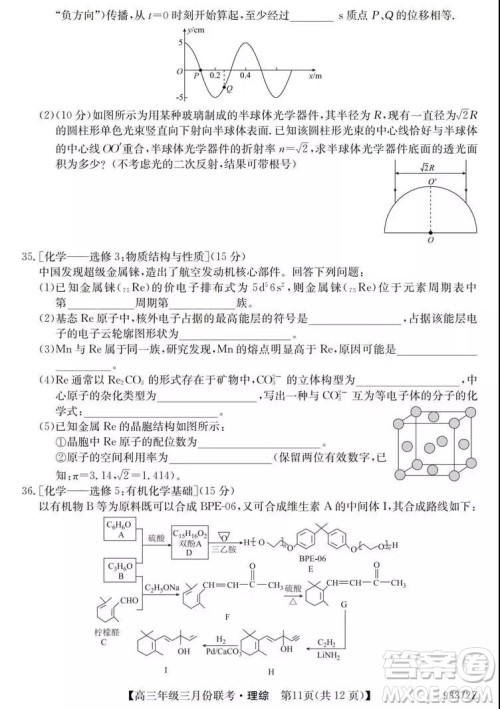 “负方向”)传播，从 t=0 时刻开始算起，至少经过______s 质点 P、Q 的位移相等.
y/cm
5
0
P
0.2
0.4
x/m
Q
-5
(2)(10 分)如图所示为用某种玻璃制成的半球体光学器件，其半径为 R，现有一直径为√2R
的圆柱形单色光束竖直向下射向半球体表面. 已知该圆柱形光束的中心线恰好与半球体
的中心线 OO′重合，半球体光学器件的折射率 n=√2，求半球体光学器件底面的透光面
积为多少?(不考虑光的二次反射，结果可带根号)
√2R
O′
O
35.[化学——选修 3:物质结构与性质](15 分)
中国发现超级金属铼，造了航空发动机核心部件。回答下列问题:
(1)已知金属铼(₇₅Re)的价电子排布式为 5d⁵6s²，则金属铼(₇₅Re)位于元素周期表中
第______周期第______族。
(2)基态 Re 原子中，核外电子占据的最高能层的符号为______，占据该能层电子的电
子的电子云轮廓图形状为______。
(3)Mn 与 Re 属于同一族，研究研究发现，Mn 的熔点明显高于 Re，原因可能是______
______。
(4)Re 通常以 Re₂CO₃ 的形式存在于矿物中，CO₃²⁻ 的立体构型为______，中
心原子的杂化类型为______，写出一种与 CO₃²⁻ 互为等电子体的分子的化
学式:______。
(5)已知金属 Re 的晶胞结构如图所示:
①晶胞中原子的配位数为______;
②原子的空间利用率为______(保留两位有效数字，已
知:π=3.14,√2=1.414)。
36.[化学——选修 5:有机化学基础](15 分)
以有机物 B 等为原料既可以合成 BPE-06，又可合成维生素 A 的中间体 I，其合成路线如下:
C₆H₆O
A
硫酸
C₁₅H₁₆O₂
双酚A
D
三乙胺
BPE-06
E
C₃H₆O
B
CHO
柠檬醛
C
C₂H₅ONa
O
CH₃
F
硫酸
△
O
CH₃
G
H
H₂
Pd/PbO, CaCO₃
OH
I
【高三年级三月份联考·理综 第11页(共 12 页)】